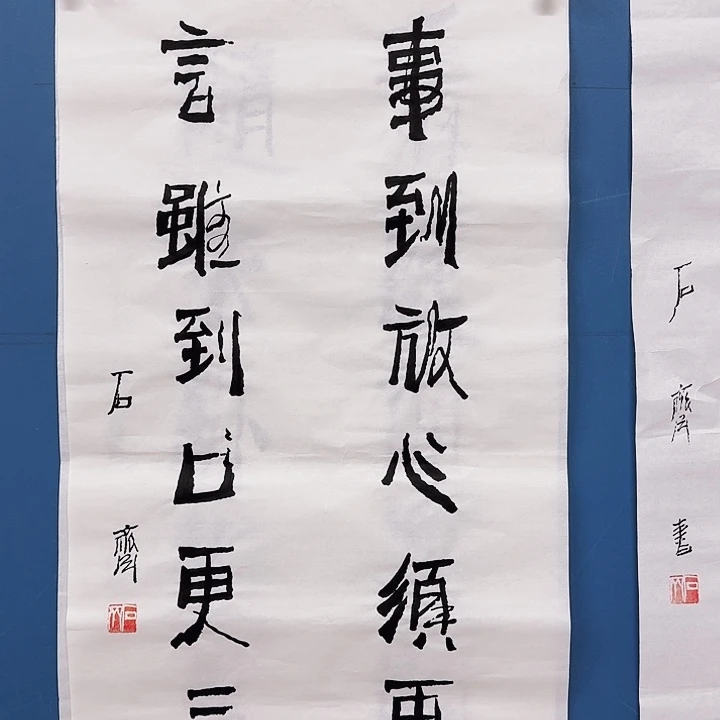 石齋書
事到放心須再
言雖到口更三
石齋